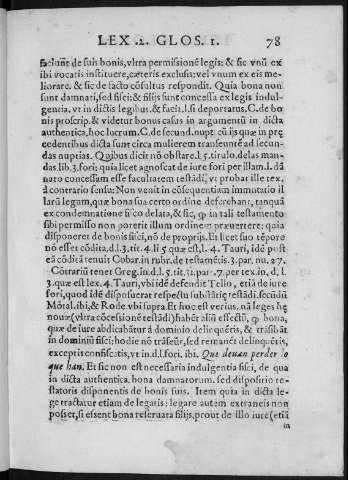 LEX .2. GLOS. 1. 78
faciunt de suis bonis, vltra permissionē legis: & sic vnū ex
ibi vocatis instituere, cæteris exclusis: vel vnum ex eis me-
liorare. & sic de facto cōsultus respondit. Quia bona non
sunt damnati, sed fisci; & filijs sunt concessa ex legis indul-
gentia. vt in dictis legibus. & facit. l. si deportatus. C. de bo
nis proscrip. & videtur bonus casus in argumentū in dicta
authentica, hoc lucrum. C. de secund. nupt. cū ijs quæ in prę
cedentibus dicta sunt circa mulierem transeuntē ad secun-
das nuptias. Quibus dicit nō obstare. l. 5. tirulo. de las man
das. lib. 3. fori; quia licet agnoscat de iure fori per illam. l. dā
nato concessam esse facultatem testādi, vt probat ille tex.
à contrario sensu: Non venit in cōsequentiam immutatio il
larū legum, quæ bona sua certo ordine deferebant, tanquā
ex condemnatione fisco delata, & sic, φ in tali testamento
sibi permisso non poterit illum ordinem præuertere; quia
disponeret de bonis fisci, nō de proprijs. Et licet suo tēpore
nō esset cōdita. d. l. 3. tit. 4. li 5. quæ est. l. 4. Tauri, idē post
eā cōditā tenuit Cobar. in rubr. de testamētis. 3. par. nu. 27.
Cōtrariū tenet Greg. in. d. l. 5. tit. 31. par. 7. per tex. in. d. l.
3. quæ est lex. 4. Tauri, vbi idē defendit Tello, etiā de iure
fori, quod idē disposuerat respectu substātię testādi. secūdū
Mōtal. ibi, & Rode. vbi supra. Et hoc est verius. nā leges hę
nouæ (vltra cōcessionē testādi) habēt aliū effectū, φ bona,
quæ de iure abdicabātur à dominio delinquētis, & trāsibāt
in dominiū fisci; hodie nō trāseūt, sed remanēt delinquētis,
exceptis confiscatis, vt in. d. l. fori. ibi. Que deuan perder lo
que han. Et sic non est necessaria indulgentia fisci, de qua
in dicta authentica. bona damnatorum. sed dispositio te-
statoris disponentis de bonis suis. Item quia in dicta le-
ge tractatur etiam de legatis: legare autem extraneis non
posset, si essent bona reseruata filijs, prout de illo iure (etiā
in